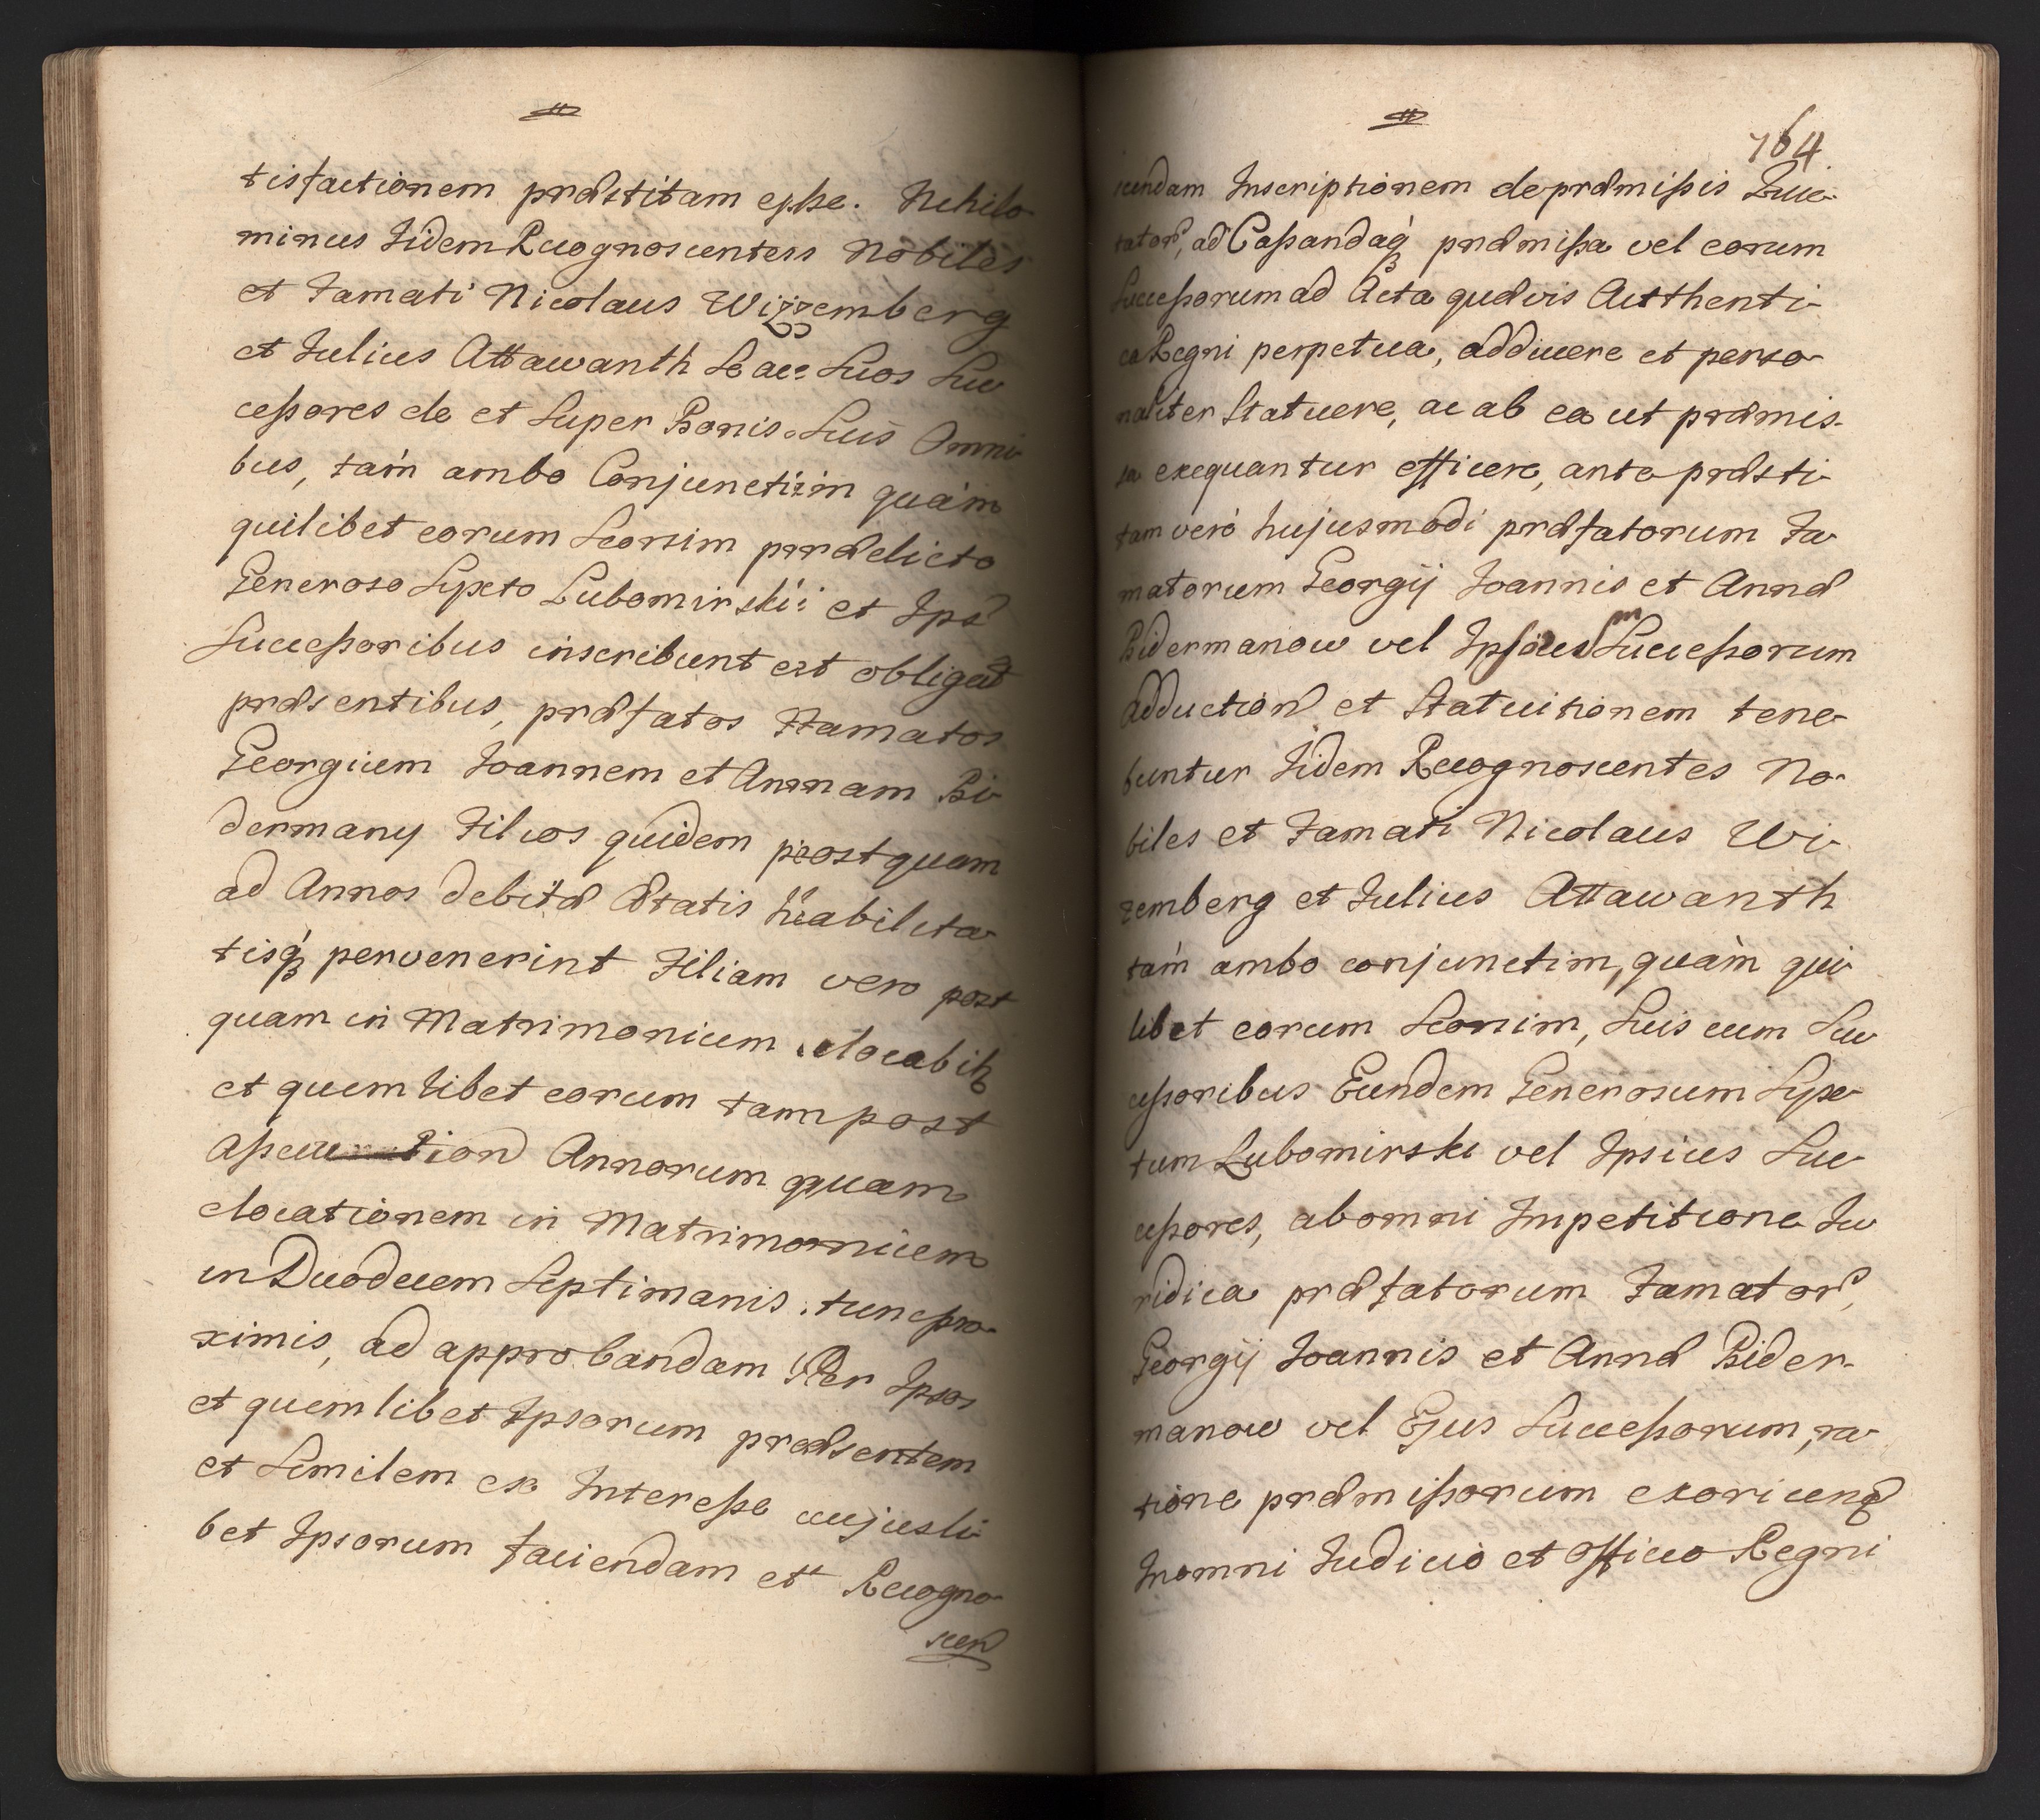 tisfactionem præstitam esse. Nihilo-
minus Iidem Recognoscentes Nobiles
et Famati Nicolaus Wizzemberg
et Iulius Attawanth Se ac Suos Suc-
cessores de et super Bonis Suis Omni-
bus, tàm ambo Conjunctim quàm
quilibet eorum Seorsim prædicto
Generoso Sypeto Lubomirskii et Ips
Successoribus inscribunt et obligat
præsentibus, præfatos Famatos
Georgium Ioannem et Annam Bi-
dermany Filios quidem postquam
ad Annos debitæ Ætatis habilita-
tisq pervenerint Filiam vero post
quam in Matrimonium elocabit
et quemlibet eorum tam post
Assecution Annorum quam
elocationem in Matrimonium
in Duodecem Septimanis tunc pro-
ximis, ad approbandam Per Ipsos
et quemlibet Ipsorum præsentem
et Similem ex Interesse cujusli-
bet Ipsorum faciendam et Recogno-
scen
764
scendam Inscriptionem de præmissis Quie-
tator, ad Cassandaq præmissa vel eorum
Successorum ad Acta quævis Autthenti-
ca Regni perpetua, adducere et perso-
naliter Statuere, ac ab ea ut præmis-
sa exequantur efficere, ante præsti-
tam verò hujusmodi præfatorum Fa-
matorum Georgij Ioannis et Annæ
Bidermanow vel Ipsius Successorum
Adduction et Statuitionem tene-
buntur Iidem Recognoscentes No-
biles et Famati Nicolaus Wi-
zemberg et Iulius Attawanth
tàm ambo conjunctim, quàm qui-
libet eorum Seorsim, Suis cum Suc-
cessoribus Eundem Generosum Sype-
tum Lubomirski vel Ipsius Suc-
cessores, ab omni Impetitione Iu-
ridica præfatorum Famator,
Georgij Ioannis et Annæ Bider-
manow vel Ejus Successorum, ra-
tione præmissorum exoriunq
In omni Iudicio et Officio Regni